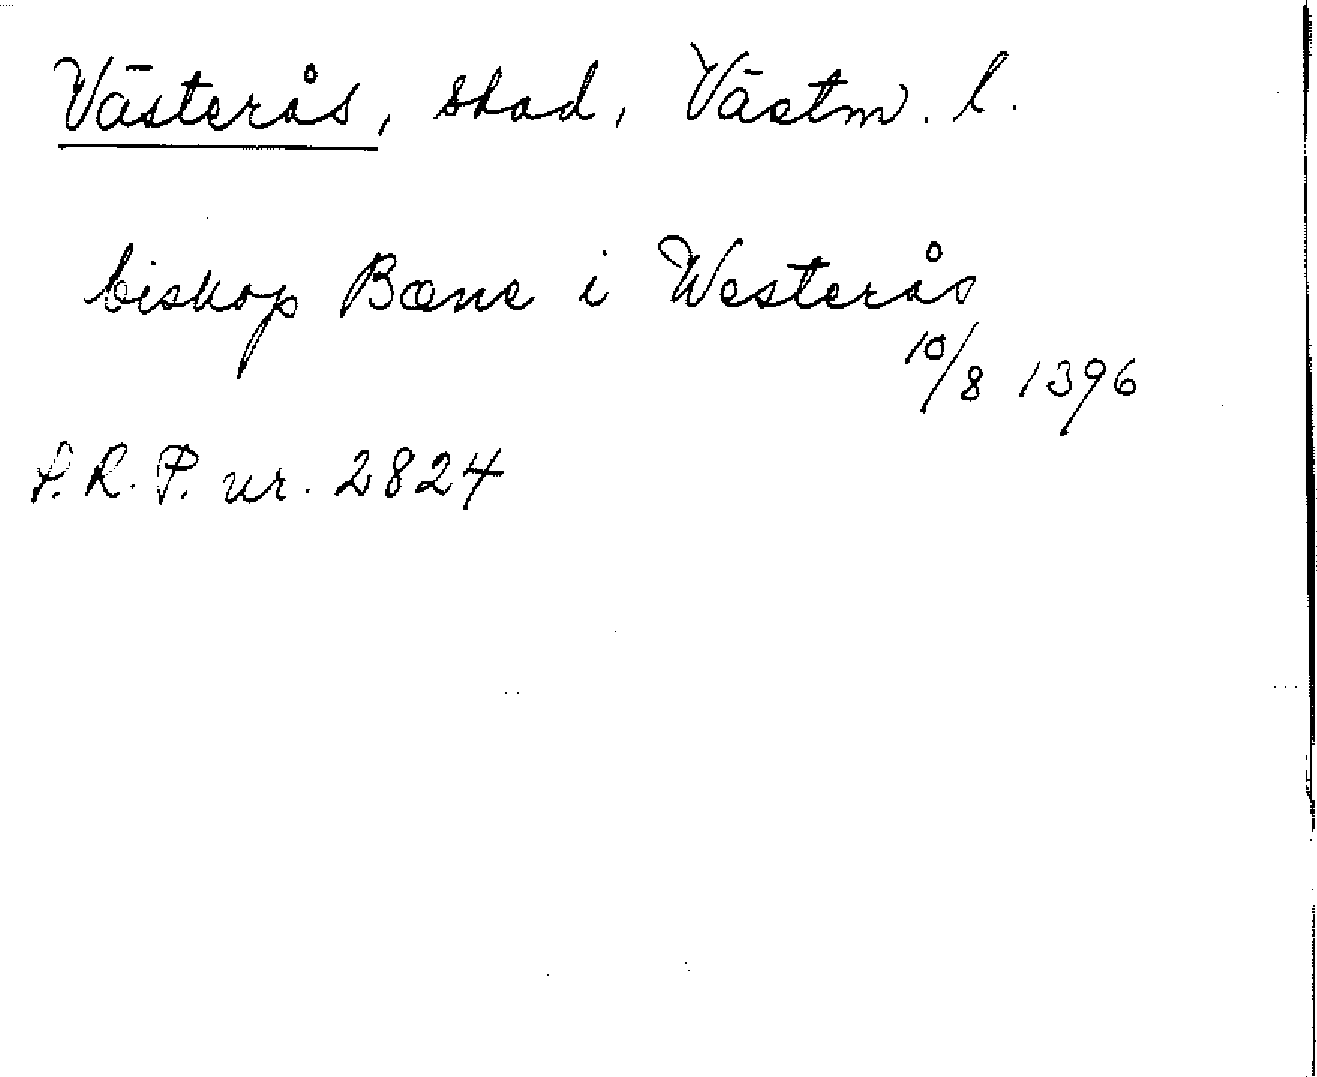 Västerås, stad, Västm. l.
biskop Bæne i Westerås
10/8 1396
S.R.P. nr. 2824